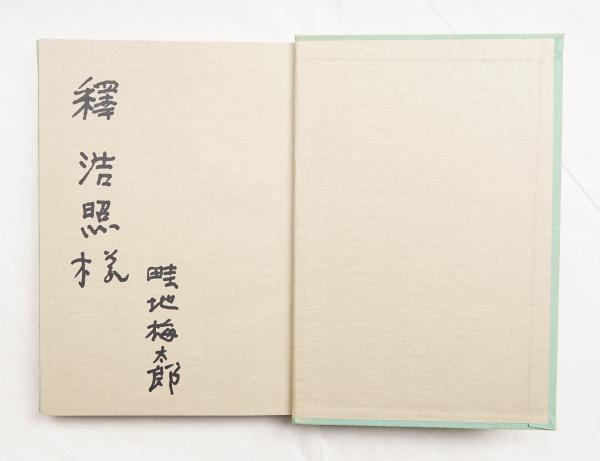 釋浩照様
畦地梅太郎